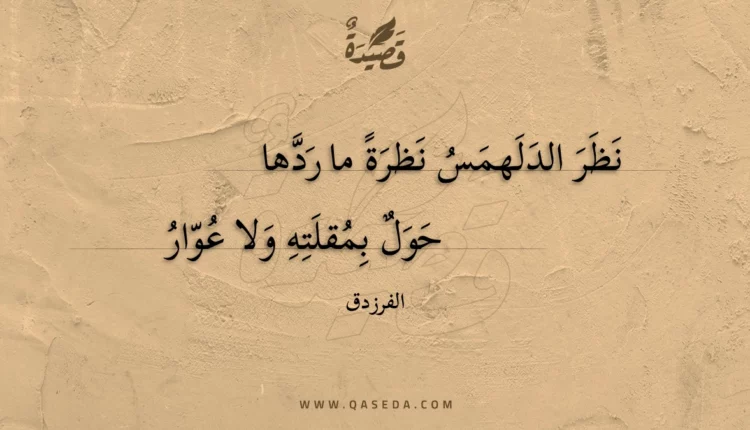 قَصِيدَةٌ
نَظَرَ الدَلَهمَسُ نَظرَةً ما رَدَّها
حَوَلٌ بِمُقلَتِهِ وَلا عُوّارُ
الفرزدق
WWW.QASEDA.COM